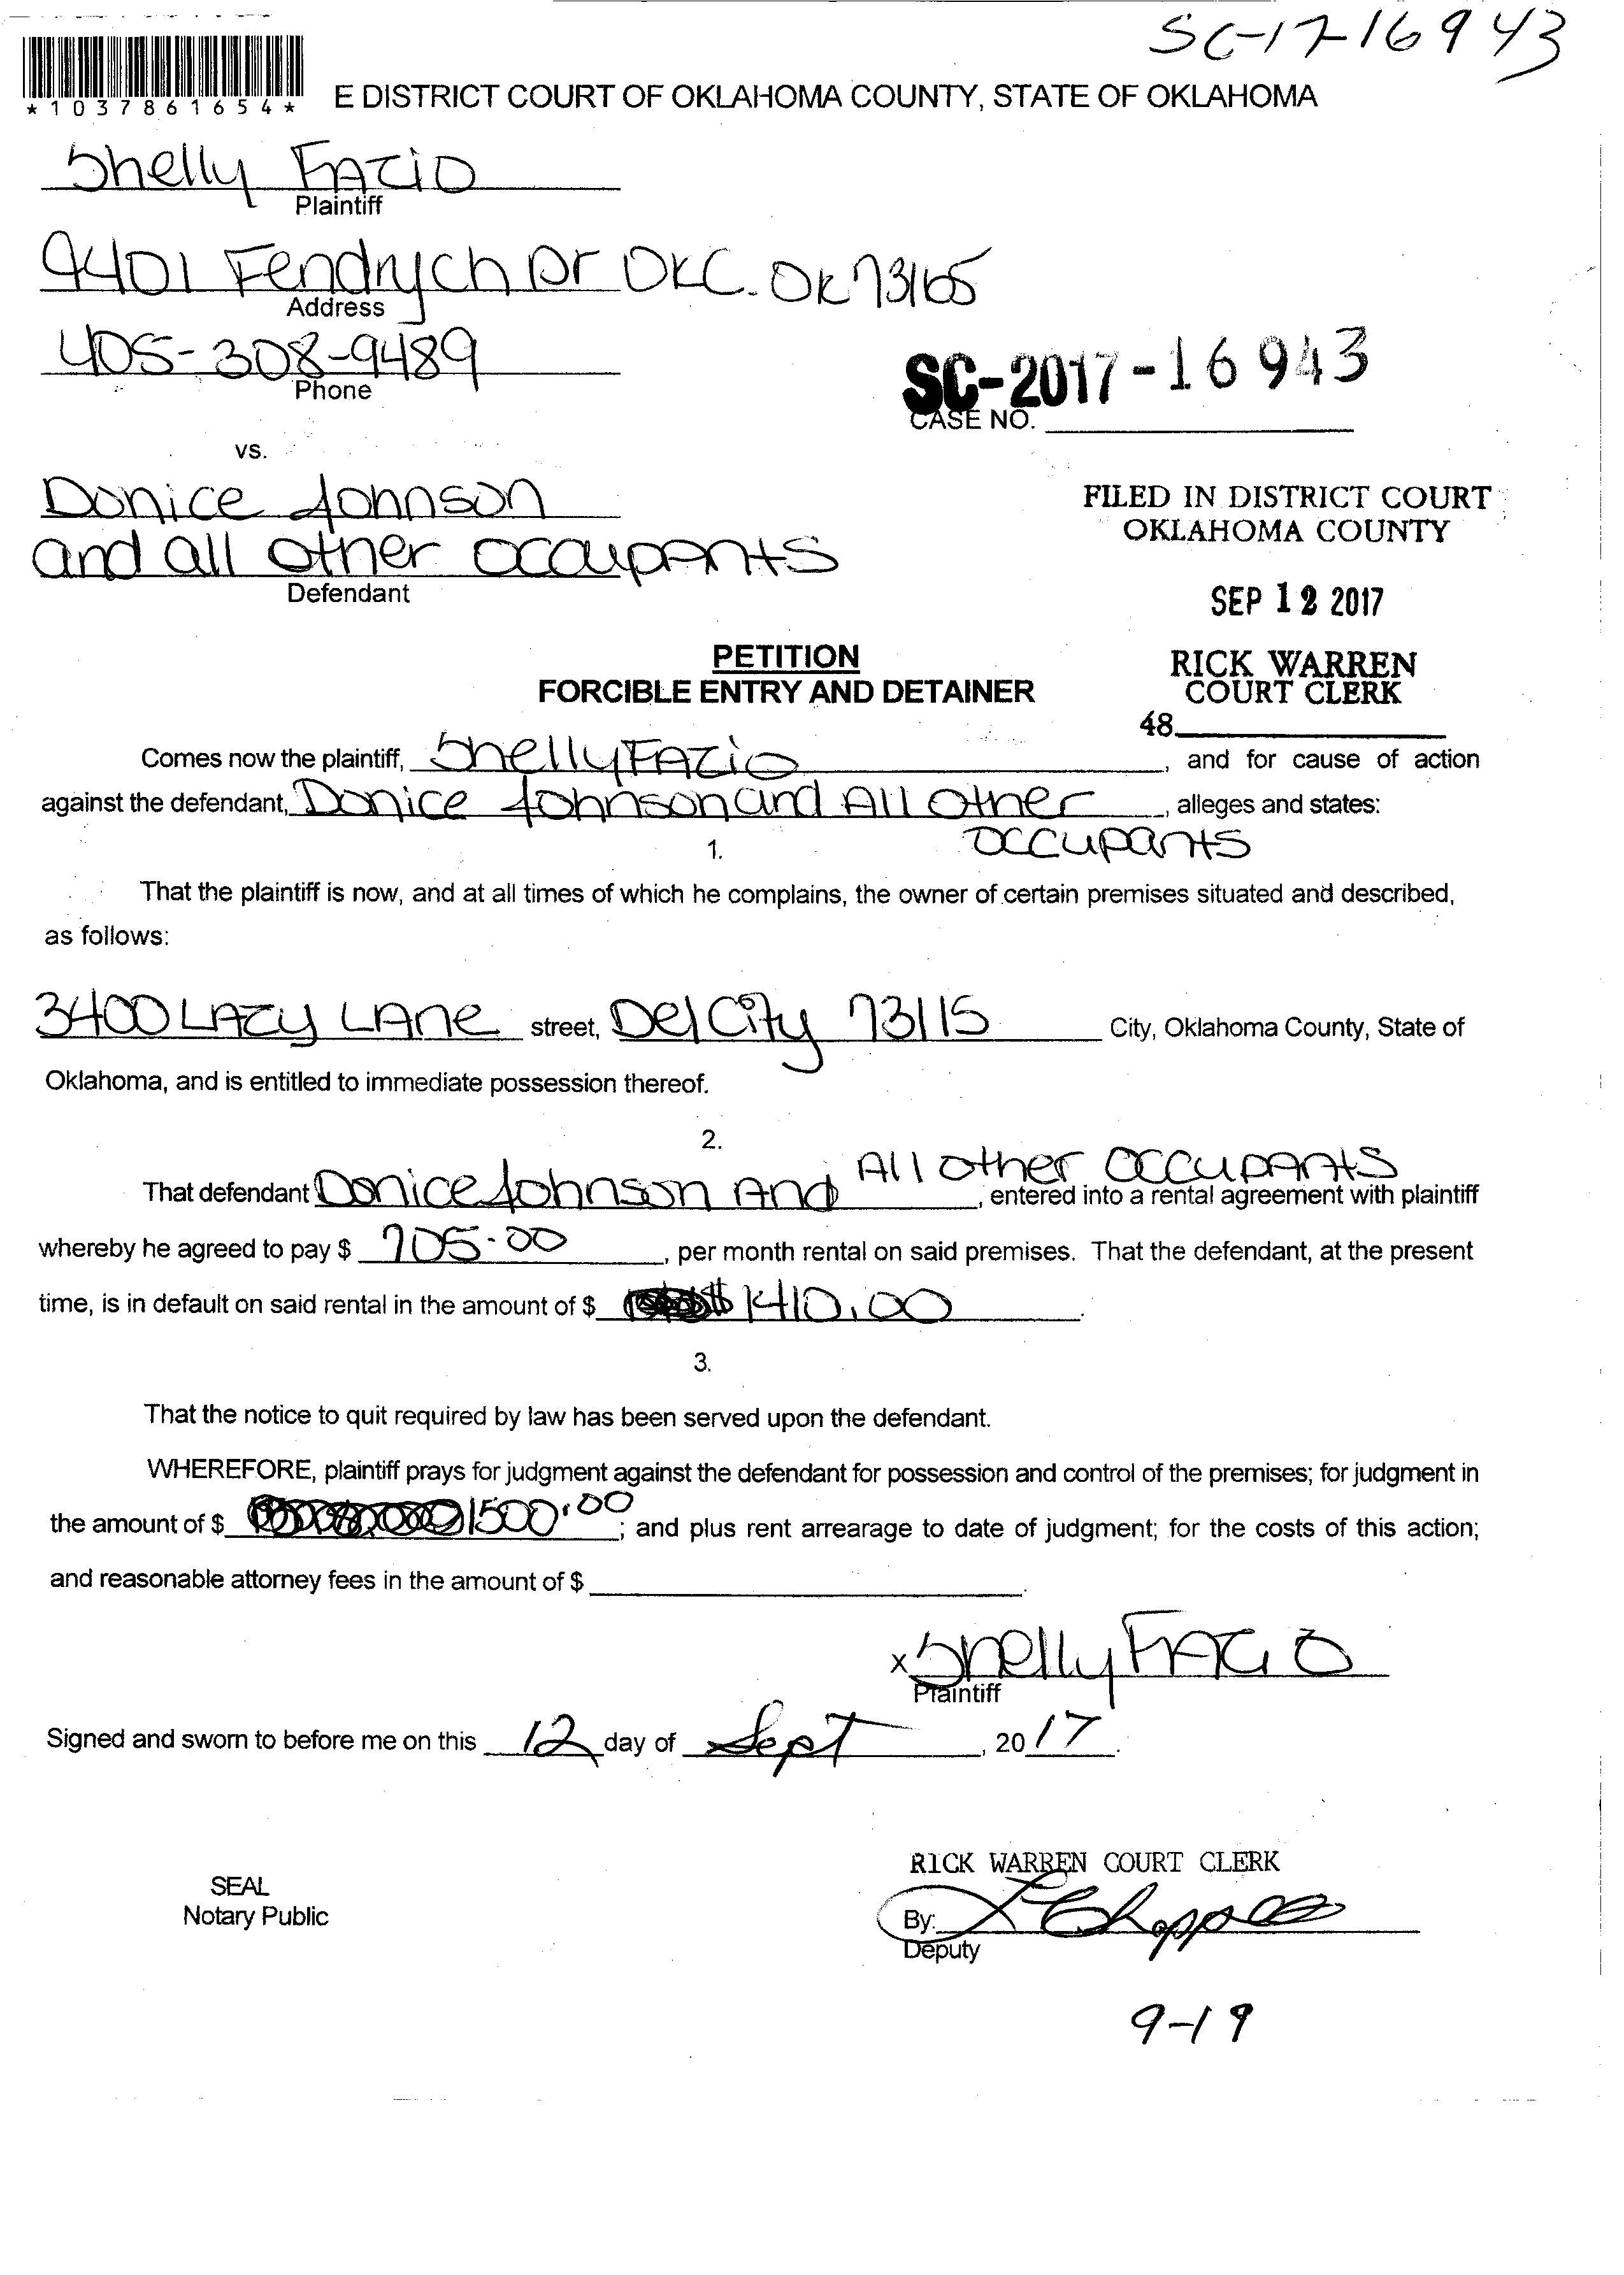 SC-17-16943
*1037861654*
E DISTRICT COURT OF OKLAHOMA COUNTY, STATE OF OKLAHOMA
Shelly Fazio
Plaintiff
9401 Fendrych Dr OKC. OK 73165
Address
405-308-9489
Phone
SC-2017-16943
CASE NO.
vs.
Donice Johnson
and all other occupants
Defendant
FILED IN DISTRICT COURT
OKLAHOMA COUNTY
SEP 12 2017
RICK WARREN
COURT CLERK
48
PETITION
FORCIBLE ENTRY AND DETAINER
Comes now the plaintiff, Shelly Fazio, and for cause of action
against the defendant, Donice Johnson and All Other, alleges and states:
occupants
1.
That the plaintiff is now, and at all times of which he complains, the owner of certain premises situated and described,
as follows:
3400 Lazy Lane street, Del City 73115 City, Oklahoma County, State of
Oklahoma, and is entitled to immediate possession thereof.
2.
That defendant Donice Johnson And All Other Occupants, entered into a rental agreement with plaintiff
whereby he agreed to pay $ 705.00, per month rental on said premises. That the defendant, at the present
time, is in default on said rental in the amount of $ $1410.00.
3.
That the notice to quit required by law has been served upon the defendant.
WHEREFORE, plaintiff prays for judgment against the defendant for possession and control of the premises; for judgment in
the amount of $ 1500.00; and plus rent arrearage to date of judgment; for the costs of this action;
and reasonable attorney fees in the amount of $ .
x Shelly Fazio
Plaintiff
Signed and sworn to before me on this 12 day of Sept, 2017.
RICK WARREN COURT CLERK
SEAL
Notary Public
By:
Deputy
9-19